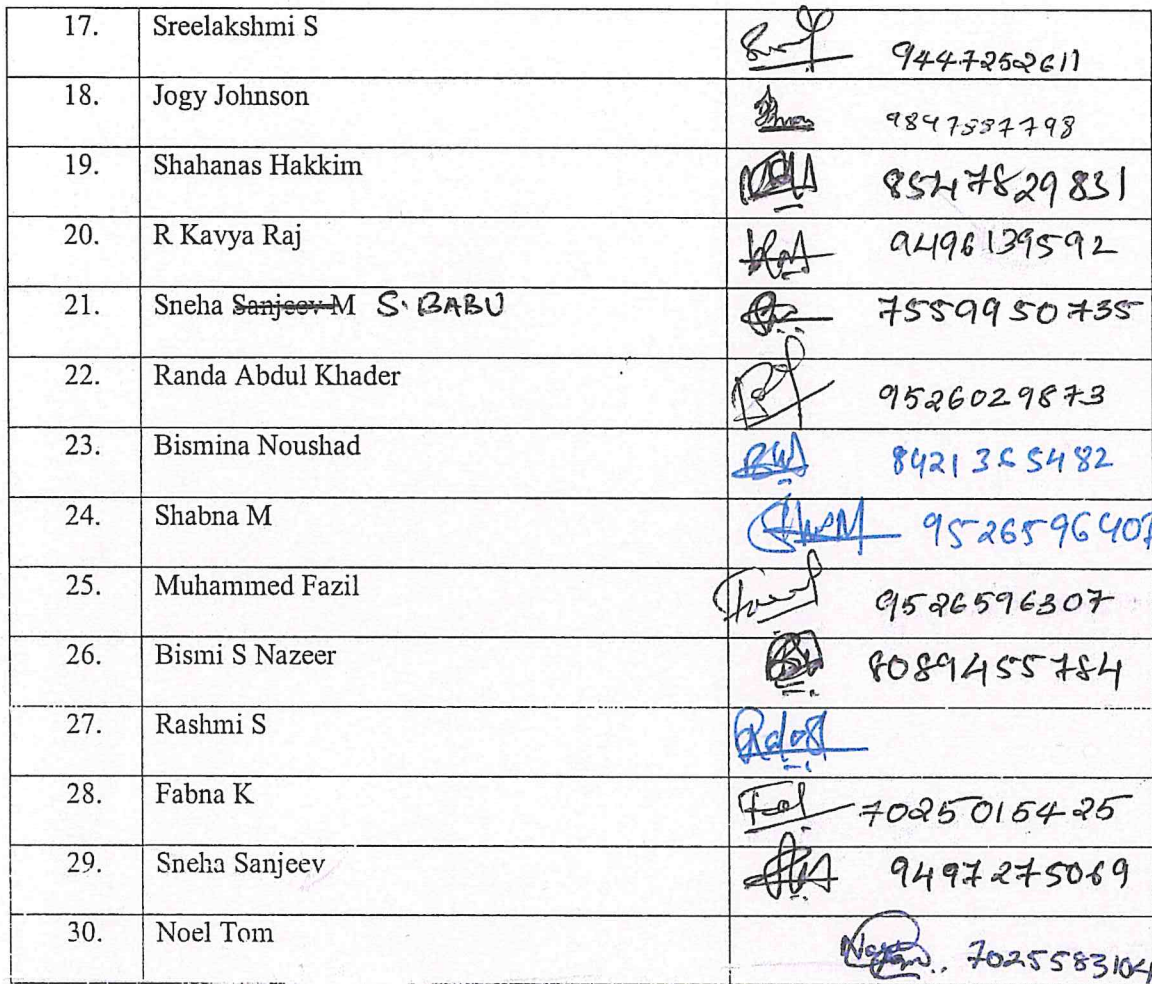 17. Sreelakshmi S 9447252611
18. Jogy Johnson 9847537798
19. Shahanas Hakkim 8547829831
20. R Kavya Raj 9496139592
21. Sneha Sanjeev M S. BABU 7559950735
22. Randa Abdul Khader 9526029873
23. Bismina Noushad
24. Shabna M 9526596407
25. Muhammed Fazil 9526596307
26. Bismi S Nazeer 8089455784
27. Rashmi S
28. Fabna K 7025015425
29. Sneha Sanjeev 9497275069
30. Noel Tom 7025583104